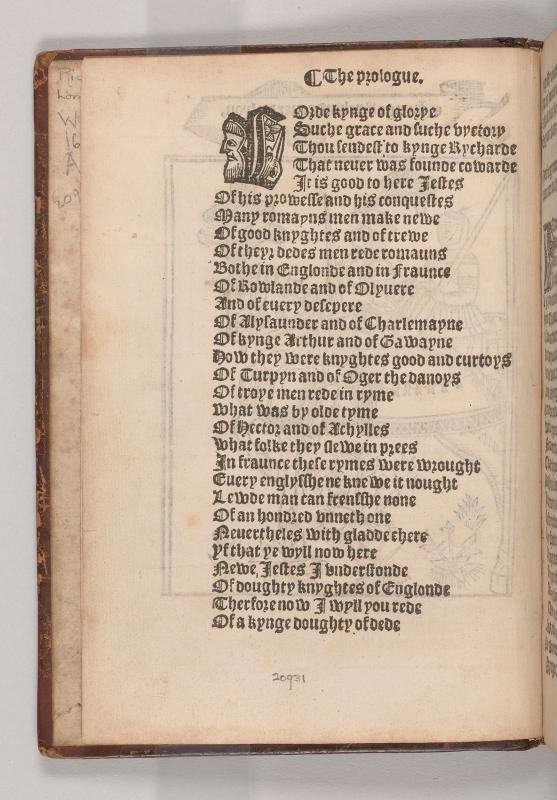 ¶ The prologue.
LOrde kynge of glorye
Suche grace and suche vyctory
Thou sendest to kynge Rycharde
That neuer was founde cowarde
It is good to here Jestes
Of his prowesse and his conquestes
Many romayns men make newe
Of good knyghtes and of trewe
Of theyr dedes men rede romauns
Bothe in Englonde and in Fraunce
Of Rowlande and of Olyuere
And of euery desepere
Of Alysaunder and of Charlemayne
Of kynge Arthur and of Gawayne
How they were knyghtes good and curtoys
Of Turpyn and of Oger the danoys
Of troye men rede in ryme
what was by olde tyme
Of Hector and of Achylles
what folke they slewe in prees
In fraunce these rymes were wrought
Euery englysshe ne knewe it nought
Lewde man can frensshe none
Of an hondred vnneth one
Neuertheles with gladde chere
Yf that ye wyll now here
Newe Jestes I vnderstonde
Of doughty knyghtes of Englonde
Therfore now I wyll you rede
Of a kynge doughty of dede
20931
Ric
Lon
W
16
A
209